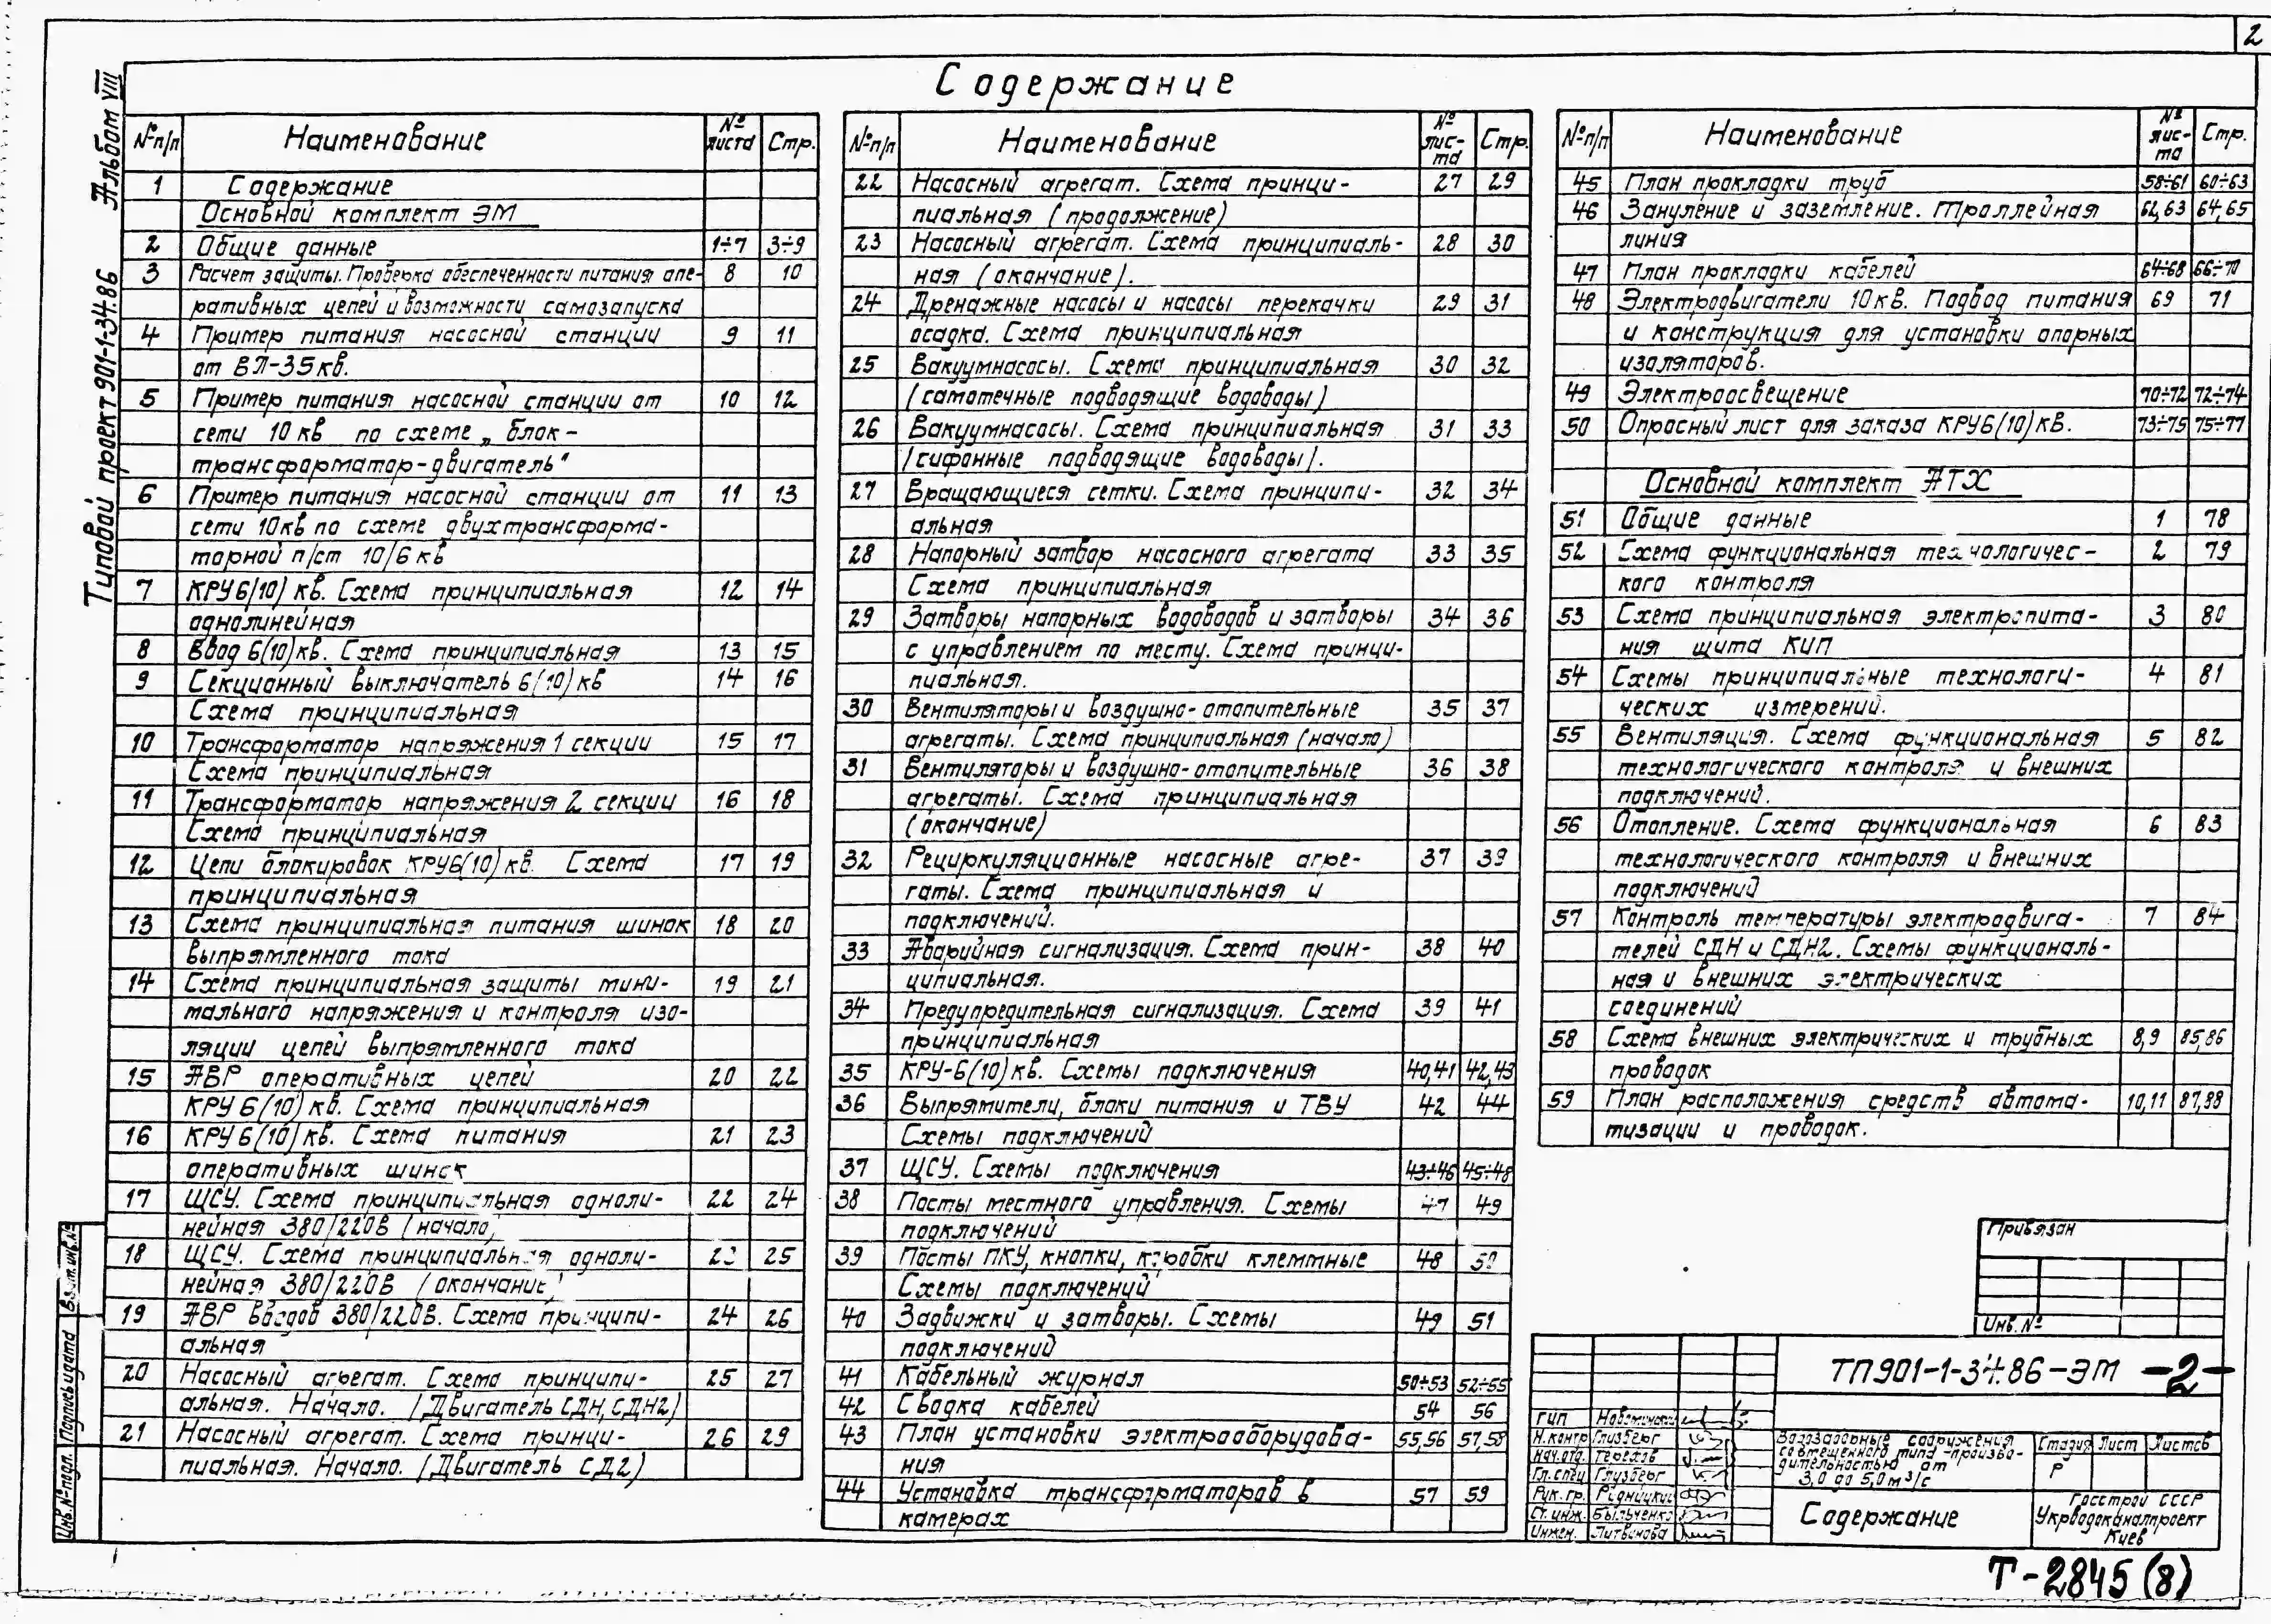 2
Содержание
Типовой проект 901-1-34.86 Альбом VIII
№п/п Наименование № листа Стр.
1 Содержание
Основной комплект ЭМ
2 Общие данные 1÷7 3÷9
3 Расчет защиты. Проверка обеспеченности питания опе- 8 10
ративных цепей и возможности самозапуска
4 Пример питания насосной станции 9 11
от ВЛ-35кв.
5 Пример питания насосной станции от 10 12
сети 10кв по схеме „блок-
трансформатор-двигатель"
6 Пример питания насосной станции от 11 13
сети 10кв по схеме двухтрансформа-
торной п/ст 10/6 кв
7 КРУ 6(10) кв. Схема принципиальная 12 14
однолинейная
8 Ввод 6(10)кв. Схема принципиальная 13 15
9 Секционный выключатель 6(10)кв 14 16
Схема принципиальная
10 Трансформатор напряжения 1 секции 15 17
Схема принципиальная
11 Трансформатор напряжения 2 секции 16 18
Схема принципиальная
12 Цепи блокировок КРУ6(10)кв. Схема 17 19
принципиальная
13 Схема принципиальная питания шинок 18 20
выпрямленного тока
14 Схема принципиальная защиты мини- 19 21
мального напряжения и контроля изо-
ляции цепей выпрямленного тока
15 АВР оперативных цепей 20 22
КРУ 6(10) кв. Схема принципиальная
16 КРУ 6(10)кв. Схема питания 21 23
оперативных шинок
17 ЩСУ. Схема принципиальная одноли- 22 24
нейная 380/220В (начало)
18 ЩСУ. Схема принципиальная одноли- 23 25
нейная 380/220В (окончание)
19 АВР вводов 380/220В. Схема принципи- 24 26
альная
20 Насосный агрегат. Схема принципи- 25 27
альная. Начало. (Двигатель СДН, СДН2)
21 Насосный агрегат. Схема принци- 26 29
пиальная. Начало. (Двигатель СД2)
№п/п Наименование № лис-та Стр.
22 Насосный агрегат. Схема принци- 27 29
пиальная (продолжение)
23 Насосный агрегат. Схема принципиаль- 28 30
ная (окончание).
24 Дренажные насосы и насосы перекачки 29 31
осадка. Схема принципиальная
25 Вакуумнасосы. Схема принципиальная 30 32
(самотечные подводящие водоводы)
26 Вакуумнасосы. Схема принципиальная 31 33
(сифонные подводящие водоводы).
27 Вращающиеся сетки. Схема принципи- 32 34
альная
28 Напорный затвор насосного агрегата 33 35
Схема принципиальная
29 Затворы напорных водоводов и затворы 34 36
с управлением по месту. Схема принци-
пиальная.
30 Вентиляторы и воздушно-отопительные 35 37
агрегаты. Схема принципиальная (начало)
31 Вентиляторы и воздушно-отопительные 36 38
агрегаты. Схема принципиальная
(окончание)
32 Рециркуляционные насосные агре- 37 39
гаты. Схема принципиальная и
подключений.
33 Аварийная сигнализация. Схема прин- 38 40
ципиальная.
34 Предупредительная сигнализация. Схема 39 41
принципиальная
35 КРУ-6(10)кв. Схемы подключения 40,41 42,43
36 Выпрямители, блоки питания и ТВУ 42 44
Схемы подключений
37 ЩСУ. Схемы подключения 43÷46 45÷48
38 Посты местного управления. Схемы 47 49
подключений
39 Посты ПКУ, кнопки, коробки клеммные 48 50
Схемы подключений
40 Задвижки и затворы. Схемы 49 51
подключений
41 Кабельный журнал 50÷53 52÷55
42 Сводка кабелей 54 56
43 План установки электрооборудова- 55,56 57,58
ния
44 Установка трансформаторов в 57 59
камерах
№п/п Наименование № лис-та Стр.
45 План прокладки труб 58÷61 60÷63
46 Зануление и заземление. Троллейная 62,63 64,65
линия
47 План прокладки кабелей 64÷68 66÷70
48 Электродвигатели 10кв. Подвод питания 69 71
и конструкция для установки опорных
изоляторов.
49 Электроосвещение 70÷72 72÷74
50 Опросный лист для заказа КРУ6(10)кв. 73÷75 75÷77
Основной комплект АТХ
51 Общие данные 1 78
52 Схема функциональная технологичес- 2 79
кого контроля
53 Схема принципиальная электропита- 3 80
ния щита КИП
54 Схемы принципиальные технологи- 4 81
ческих измерений.
55 Вентиляция. Схема функциональная 5 82
технологического контроля и внешних
подключений.
56 Отопление. Схема функциональная 6 83
технологического контроля и внешних
подключений
57 Контроль температуры электродвига- 7 84
телей СДН и СДН2. Схемы функциональ-
ная и внешних электрических
соединений
58 Схема внешних электрических и трубных 8,9 85,86
проводок
59 План расположения средств автома- 10,11 87,88
тизации и проводок.
Привязан
Инв.№
ТП901-1-34.86-ЭМ -2-
ГИП
Н.контр Глизберг
Нач.отд. Терехов
Гл.спец Глузберг
Рук.гр.
Ст.инж. Быльченко
Инжен. Литвинова
Водозаборные сооружения
совмещенного типа произво-
дительностью от
3,0 до 5,0 м³/с
Стадия Лист Листов
Р
Содержание
Госстрой СССР
Укрводоканалпроект
Киев
Инв.№подл. Подпись и дата Взам.инв.№
Т-2845(8)